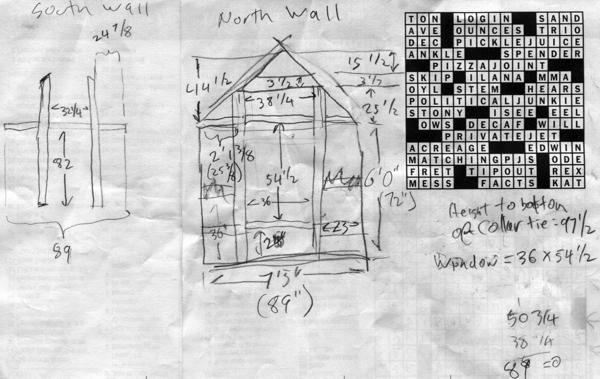 South Wall
24 7/8
32 1/4
82
89
North Wall
41 1/2
3 1/2
38 1/4
15 1/2
3 1/2
25 1/2
2' 1 3/8
(25 3/8)
54 1/2
36
36
23
6'0"
(72")
7'5"
(89")
TON LOGIN SAND
AVE OUNCES TRIO
DEC PICKLEJUICE
ANKLE SPENDER
PIZZAJOINT
SKIP ILANA MMA
OYL STEM HEARS
POLITICALJUNKIE
STONY ISEE EEL
OWS DECAF WILL
PRIVATEJET
ACREAGE EDWIN
MATCHINGPJS ODE
FRET TIPOUT REX
MESS FACTS KAT
Height to bottom
of collar tie = 97 1/2
Window = 36 x 54 1/2
50 3/4
38 1/4
89 = 0